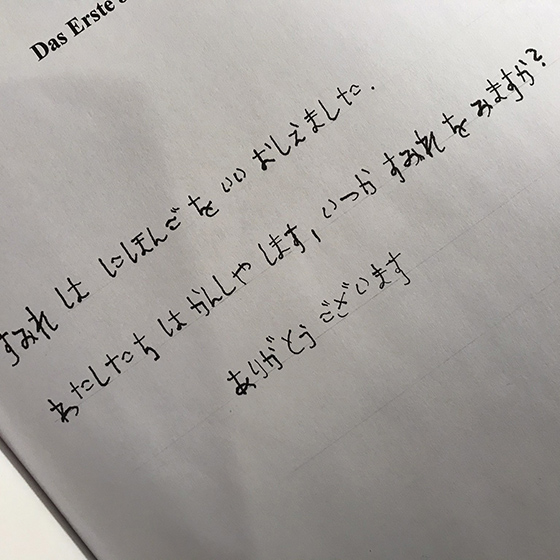 Das Erste
すみれ は にほんご を いい おしえました.
わたしたち は かんしや します, いつか すみれ を みますか?
ありがとう ございます